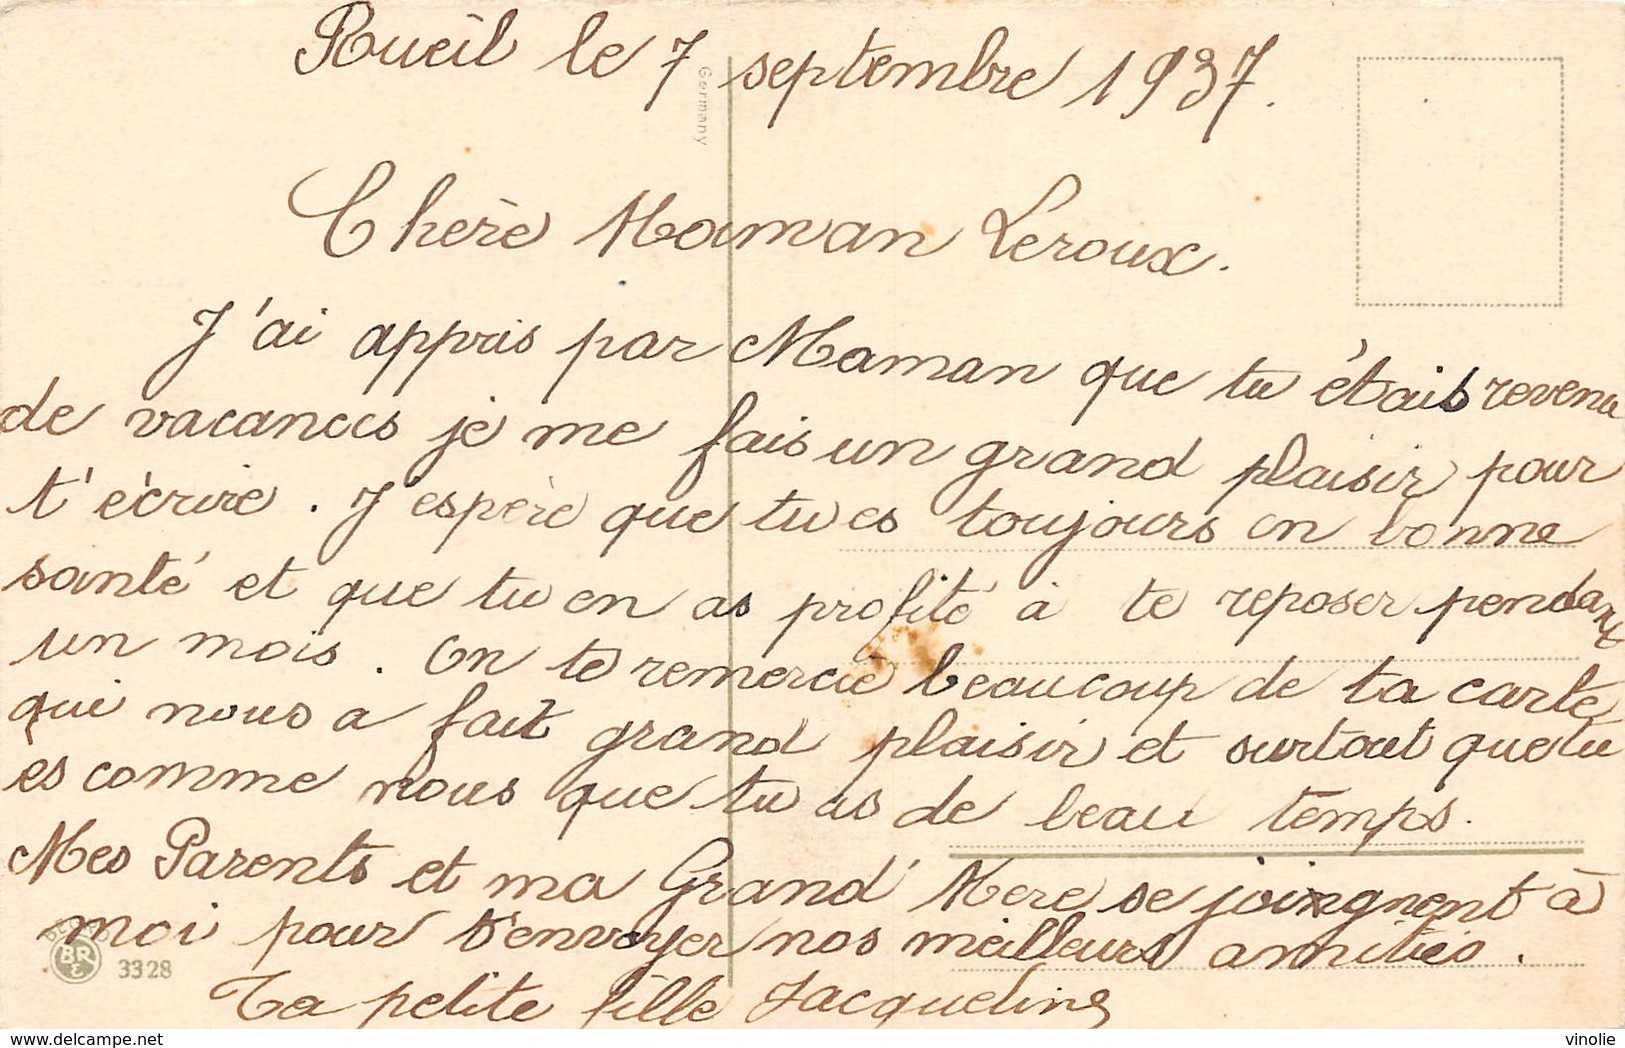 Rueil le 7 septembre 1937.
Germany
Chère Maman Leroux.
J'ai appris par Maman que tu étais revenu
de vacances je me fais un grand plaisir pour
t'écrire. J'espère que tu es toujours en bonne
santé et que tu en as profité à te reposer pendant
un mois. On te remercie beaucoup de ta carte
qui nous a fait grand plaisir et surtout que tu
es comme nous que tu as de beau temps.
Mes Parents et ma Grand' Mere se joignent à
moi pour t'envoyer nos meilleurs amitiés.
BR
3328
Ta petite fille Jacqueline
delcampe.net
vinolie